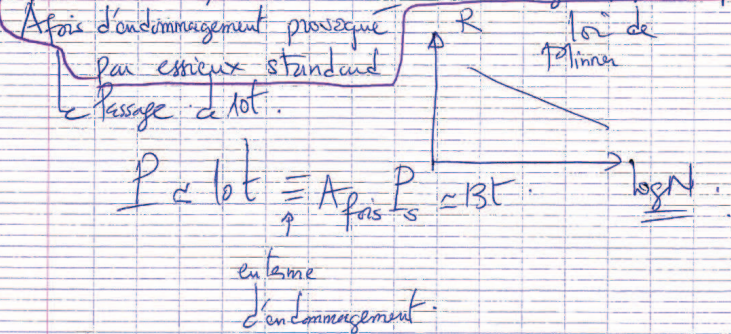 A fois d'endommagement provoqué
par essieux standard
Passage à 10t.
R
loi de
Minner
P à 10t ≡ A fois Ps = 13t.
log N.
en terme
d'endommagement.